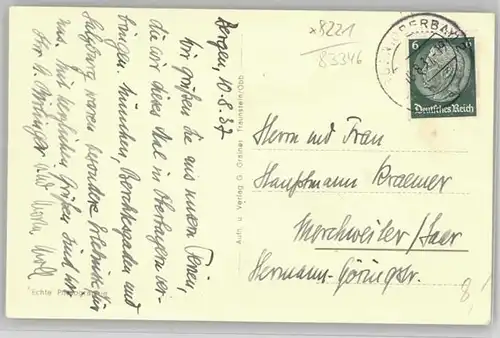 Bergen, 10.8.37
Wir grüßen Sie aus unseren Ferien,
die wir dieses Mal in Oberbayern ver-
bringen. München, Berchtesgaden und
Salzburg waren besondere Erlebnisse für
uns. Mit herzlichen Grüßen sind wir
Ihre
und
Echte Photographie
Auth. u. Verlag G. Grainer, Traunstein/Obb.
*8221
83346
OBERBAY
6
Deutsches Reich
Herrn und Frau
Hauptmann Kraemer
Merchweiler/Saar
Hermann-Göringstr.
8